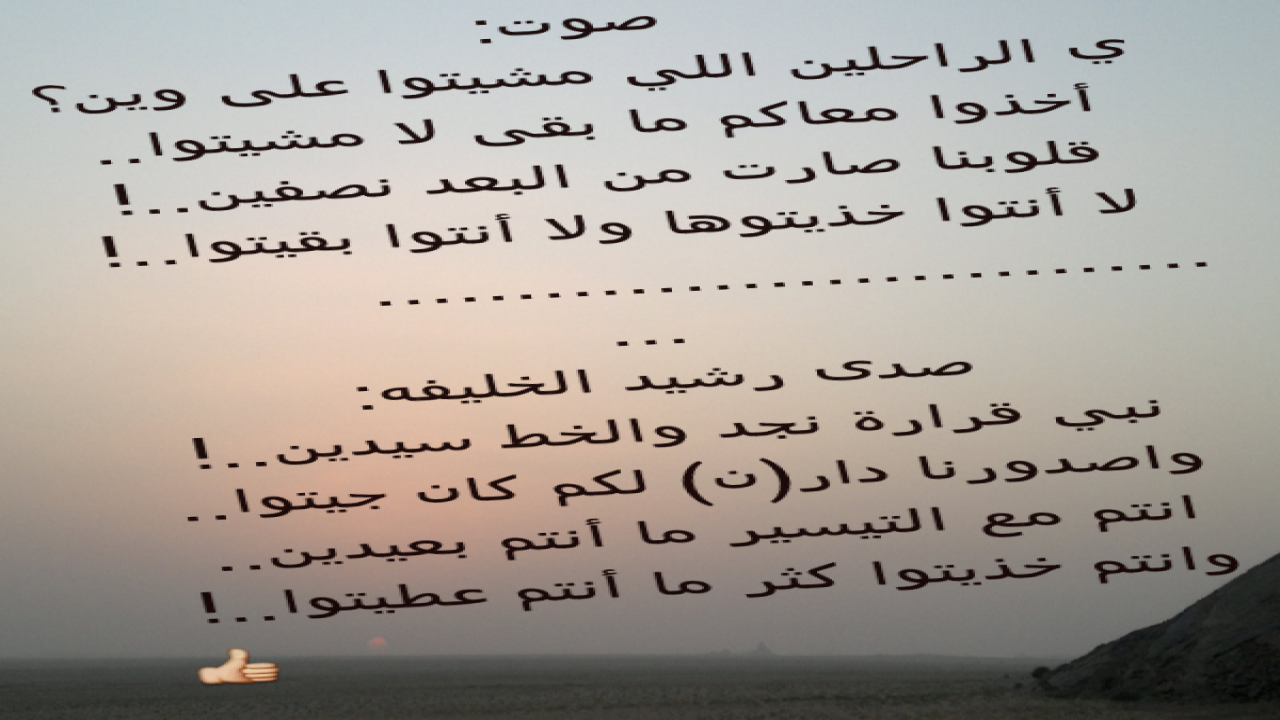 صوت:
ي الراحلين اللي مشيتوا على وين؟
أخذوا معاكم ما بقى لا مشيتوا..
قلوبنا صارت من البعد نصفين..!
لا أنتوا خذيتوها ولا أنتوا بقيتوا..!
..............................
...
صدى رشيد الخليفه:
نبي قرارة نجد والخط سيدين..!
واصدورنا دار(ن) لكم كان جيتوا..
انتم مع التيسير ما أنتم بعيدين..
وانتم خذيتوا كثر ما أنتم عطيتوا..!
👍